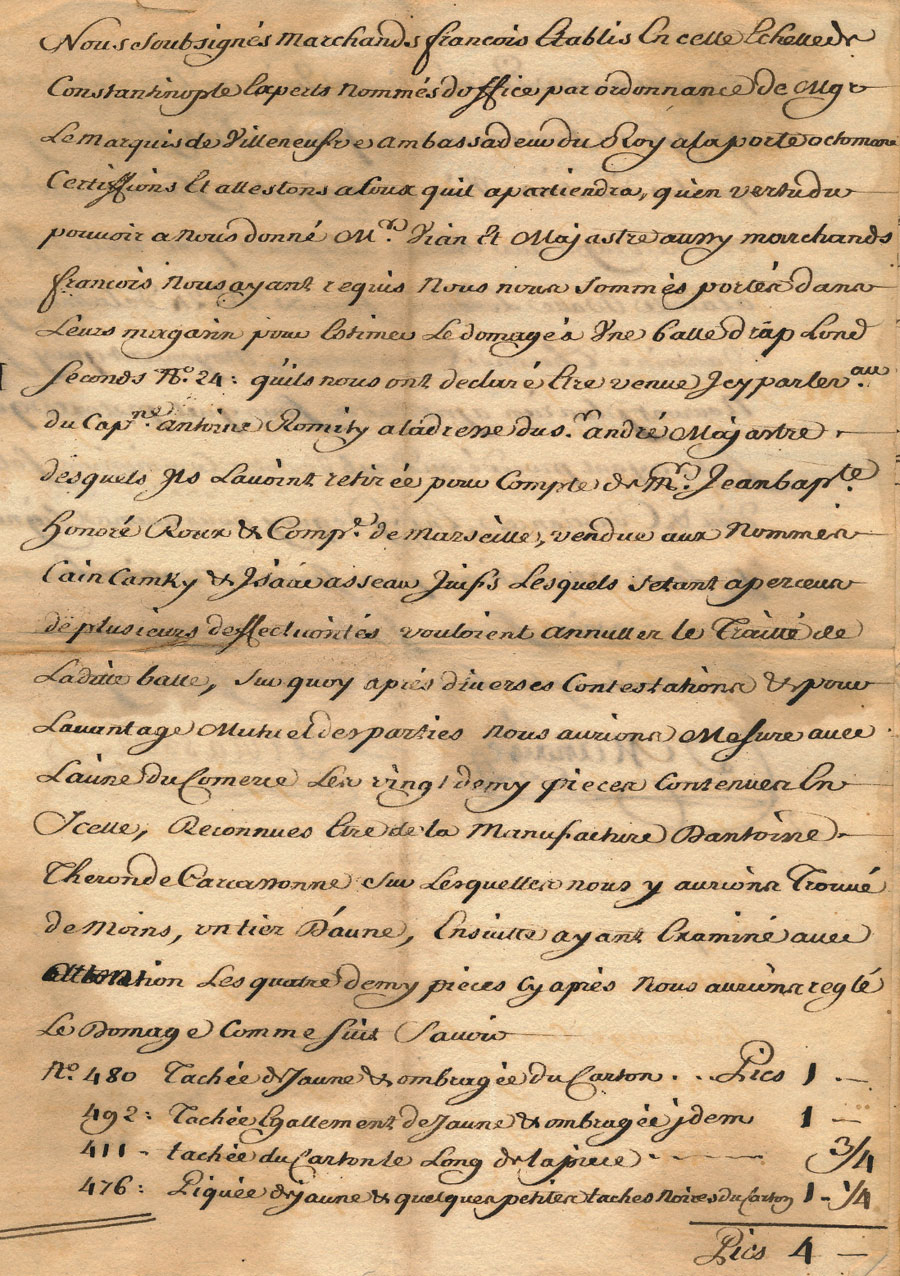 Nous Soubsignés Marchands françois Etablis En cette Echelle de
Constantinople Experts Nommés doffice par ordonnance de Mgr
Le Marquis de Villeneufve ambassadeur du Roy a la porte octomane
Certiffions Et attestons a Tous quil apartiendra, qu'en vertu du
pouvoir a nous donné Mrs. Vian Et Majastre aussy marchands
françois Nous ayant requis Nous nous Sommes portés dans
Leurs magasin pour Estimer Le domage a Une balle drap Lond
Seconds No. 24: qu'ils nous ont declaré Etre venue Jcy par le Vau
du Capne. Antoine Romity a ladresse du Sr. andré Majastre
desquels Jls Lavoint retirée pour Compte de Mr. Jean bapte.
Honoré Roux & Compe. de Marseille, vendue aux Nommés
Cain Camky & Jsaac asseau Juifs Lesquels Setant aperceus
de plusieurs deffectuosités vouloient annuller le Traitté de
Ladite balle, Sur quoy aprés diverses Contestations & pour
Lavantage Mutuel des parties nous aurions Mesuré avec
Laune du Comerce Les vingt demy pieces Contenues En
Jcelle, Reconnues Etre de la Manufacture D'antoine
Theron de Carcassonne Sur Lesquelles nous y aurions Trouvé
de Moins, un tier D'aune, Ensuitte ayant Examiné avec
attention Les quatre demy pieces Cy aprés Nous aurions reglé
Le Domage Comme Suit Savoir
No. 480 Tachée de Jaune & ombragée du Carton . . . Pics 1 —
492: Tachée Egallement de Jaune & ombragée jdem 1 —
411 - tachée du Carton le Long de la piece — 3/4
476: Piquée de jaune & quelques petites taches Noires du Carton 1 - 1/4
Pics 4 —